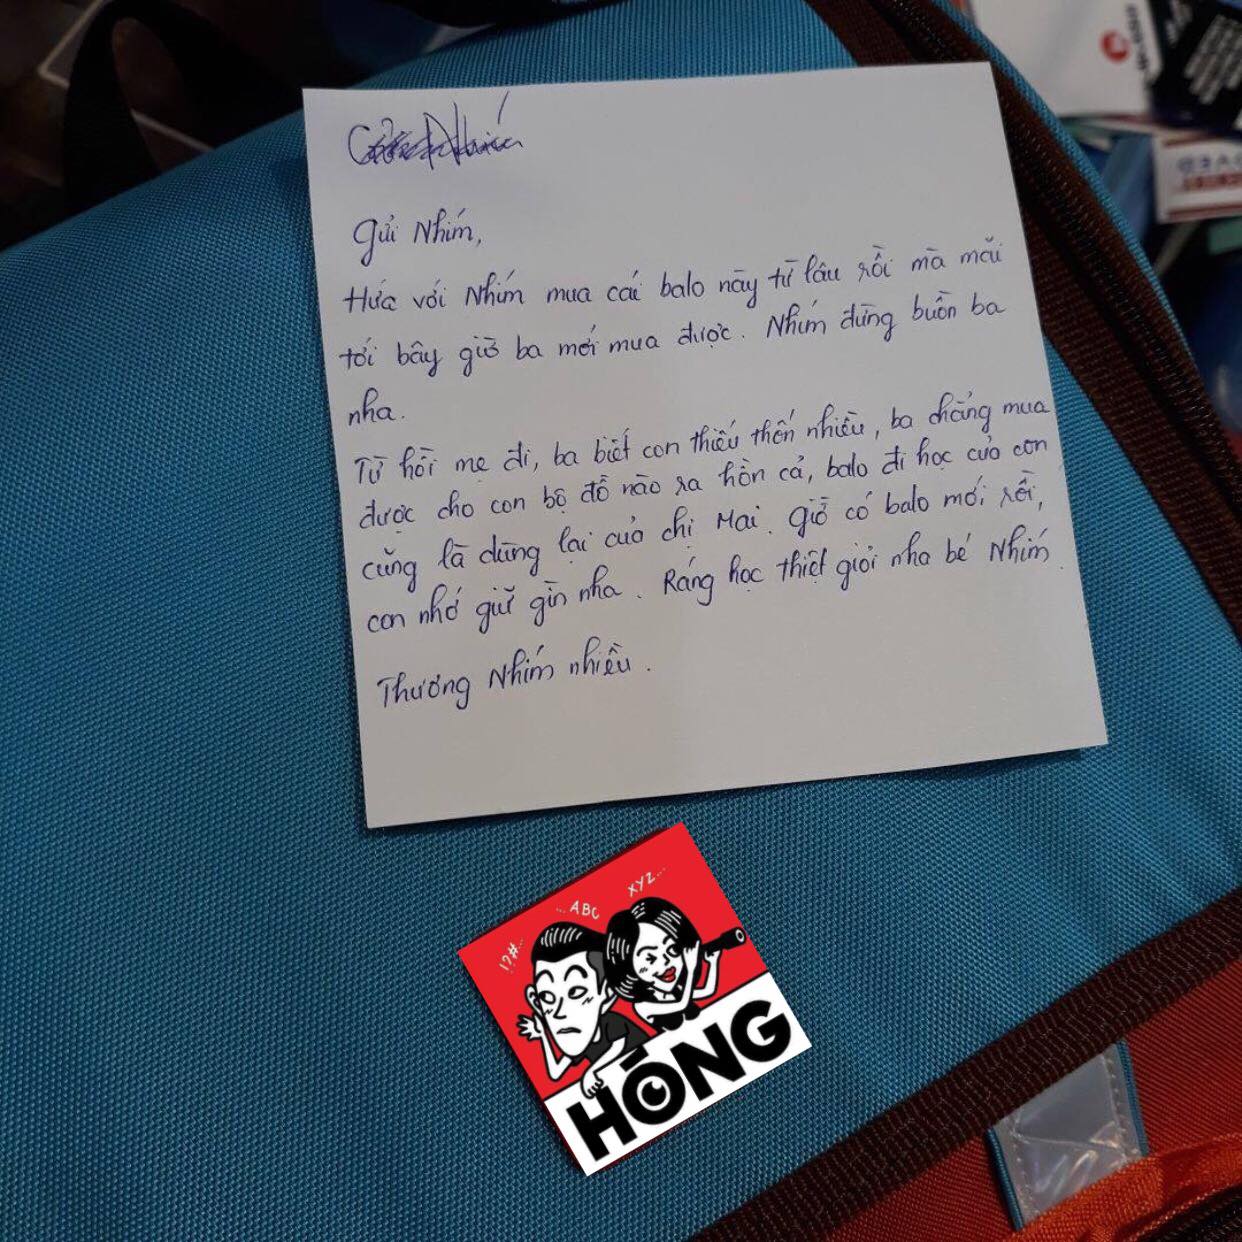 Gửi Nhím,
Hứa với Nhím mua cái balo này từ lâu rồi mà mãi
tới bây giờ ba mới mua được. Nhím đừng buồn ba
nha.
Từ hồi mẹ đi, ba biết con thiếu thốn nhiều, ba chẳng mua
được cho con bộ đồ nào ra hồn cả, balo đi học của con
cũng là dùng lại của chị Mai. Giờ có balo mới rồi,
con nhớ giữ gìn nha. Ráng học thiệt giỏi nha bé Nhím.
Thương Nhím nhiều.
!?#...
...ABC
XYZ...
HÓNG